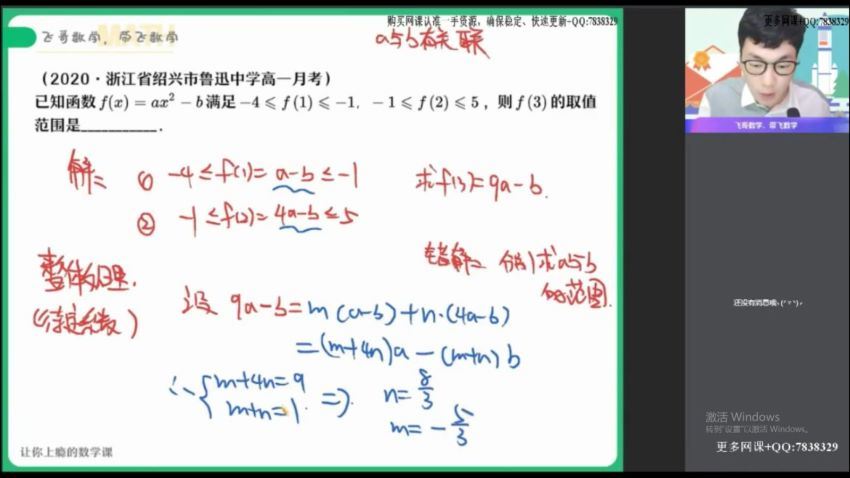 购买网课认准一手货源，确保稳定、快速更新-QQ:7838329
更多网课+QQ:7838329
飞哥数学，带飞数学
MATH
a与b有关联
（2020·浙江省绍兴市鲁迅中学高一月考）
已知函数 f(x) = ax² − b 满足 −4 ⩽ f(1) ⩽ −1，−1 ⩽ f(2) ⩽ 5，则 f(3) 的取值
范围是________．
解：① -4≤f(1)=a-b≤-1 求f(3)=9a-b.
② -1≤f(2)=4a-b≤5
错解：分别求a与b
的范围.
整体处理.
(待定系数)
设 9a-b=m(a-b)+n·(4a-b)
=(m+4n)a-(m+n)b
∴{m+4n=9
m+n=1 ⇒ n=8/3
m=-5/3
让你上瘾的数学课
飞哥数学，带飞数学
还没有消息哦~
激活 Windows
转到"设置"以激活 Windows。
更多网课+QQ:7838329